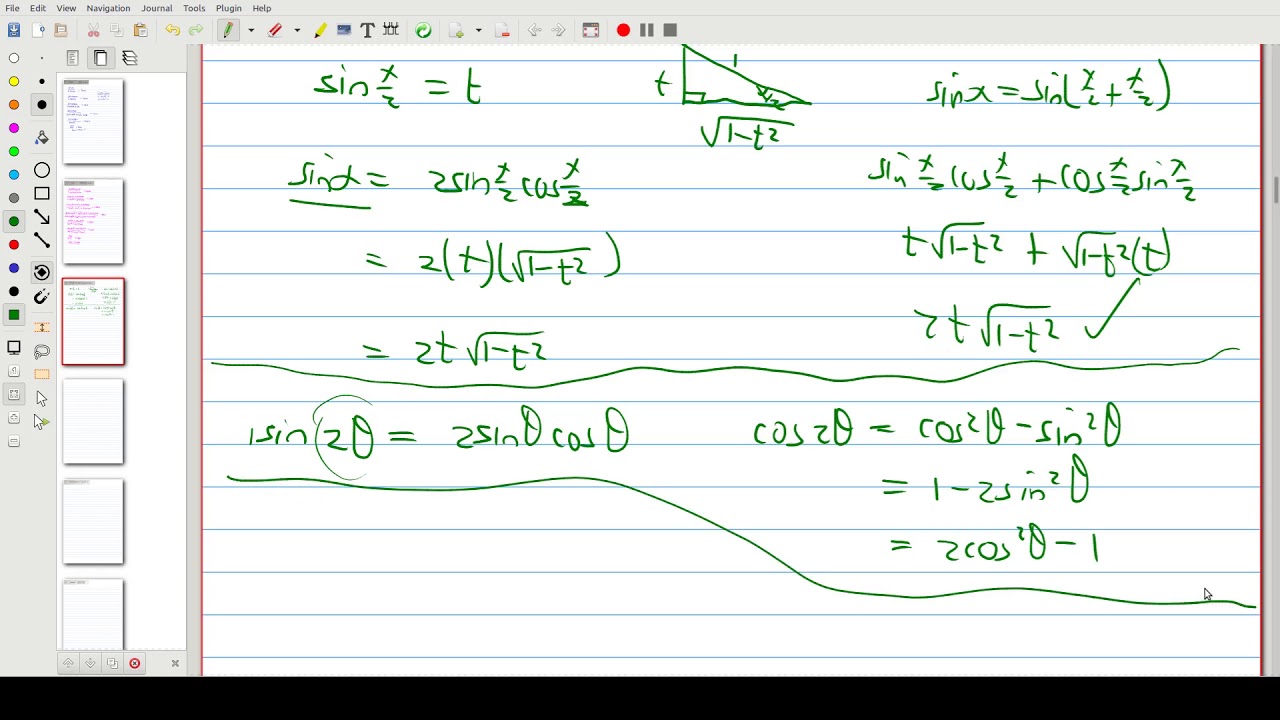 File Edit View Navigation Journal Tools Plugin Help
sin x/2 = t
t 1 x/2
√1-t²
sinx = sin(x/2 + x/2)
sinx = 2sin x/2 cos x/2
= 2(t)(√1-t²)
= 2t√1-t²
sin x/2 cos x/2 + cos x/2 sin x/2
t√1-t² + √1-t²(t)
2t√1-t² ✓
sin2θ = 2sinθ cosθ
cos2θ = cos²θ - sin²θ
= 1 - 2sin²θ
= 2cos²θ - 1